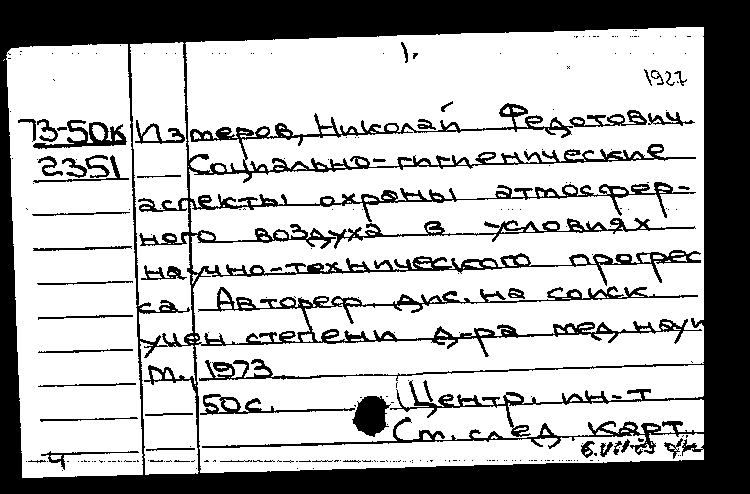 1.
1927
73-50к Измеров, Николай Федотович.
2351 Социально-гигиенические
аспекты охраны атмосфер-
ного воздуха в условиях
научно-технического прогрес
са. Автореф. дис. на соиск.
учен. степени д-ра мед. наук
М., 1973.
50 с. (Центр. ин-т
См. след. карт.
4